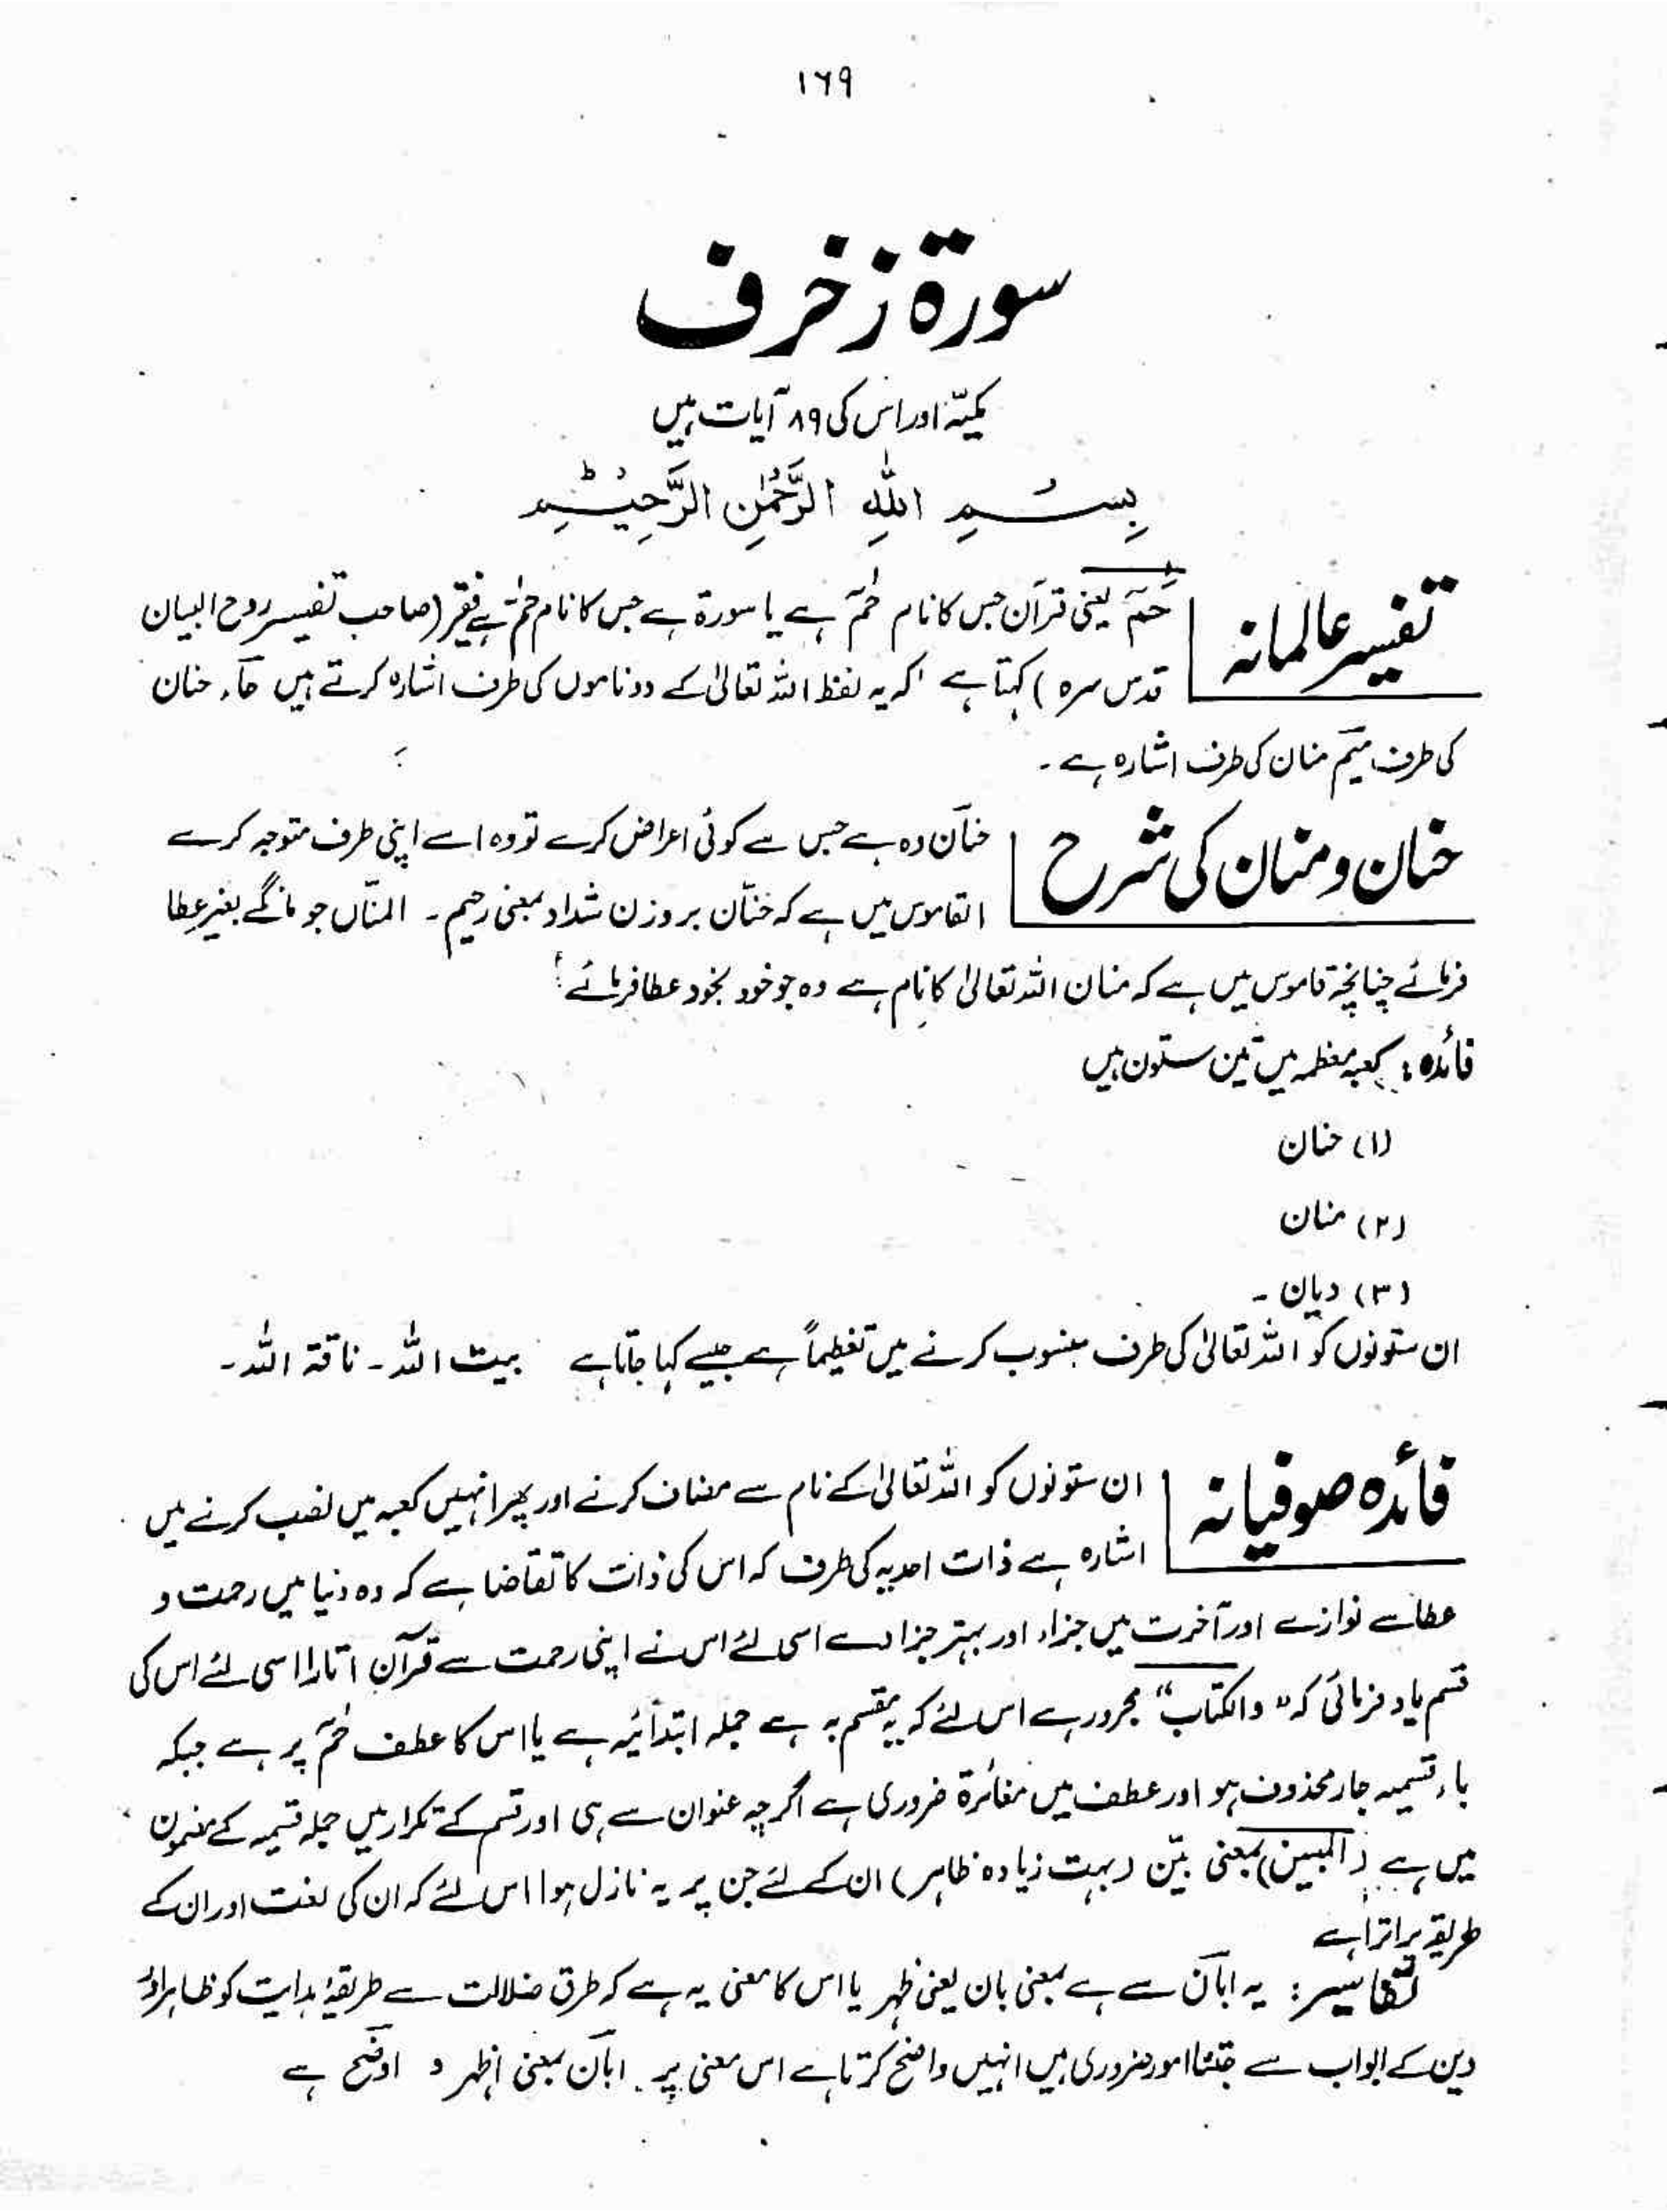 ۱۶۹
سورۃ زخرف
مکیہّ اور اس کی ۸۹ آیات ہیں
بِسْمِ اللهِ الرَّحْمٰنِ الرَّحِيْمِ
تفسیر عالمانہ
حٰمٓ یعنی قرآن جس کا نام حٰمٓ ہے یا سورۃ ہے جس کا نام حٰمٓ ہے فقیر (صاحب تفسیر روح البیان
قدس سرہ) کہتا ہے کہ یہ لفظ اللہ تعالیٰ کے دو ناموں کی طرف اشارہ کرتے ہیں حآء حنان
کی طرف میٓم منان کی طرف اشارہ ہے۔
حنان و منان کی شرح
حنآن وہ ہے جس سے کوئی اعراض کرے تو وہ اسے اپنی طرف متوجہ کرے
القاموس میں ہے کہ حنّان بروزن شداد بمعنی رحیم۔ المنّان جو مانگے بغیر عطا
فرمائے چنانچہ قاموس میں ہے کہ منان اللہ تعالیٰ کا نام ہے وہ جو خود بخود عطا فرمائے
فائدہ: کعبہ معظمہ میں تین ستون ہیں
(۱) حنان
(۲) منان
(۳) دیان۔
ان ستونوں کو اللہ تعالیٰ کی طرف منسوب کرنے میں تعظیماً ہے جیسے کہا جاتا ہے بیت اللہ۔ ناقۃ اللہ۔
فائدہ صوفیانہ
ان ستونوں کو اللہ تعالیٰ کے نام سے مضاف کرنے اور پھر انہیں کعبہ میں نصب کرنے میں
اشارہ ہے ذات احدیہ کی طرف کہ اس کی ذات کا تقاضا ہے کہ وہ دنیا میں رحمت و
عطا سے نوازے اور آخرت میں جزاء اور بہتر جزا دے اسی لئے اس نے اپنی رحمت سے قرآن اتارا اسی لئے اس کی
قسم یاد فرمائی کہ "والکتاب" مجرور ہے اس لئے کہ یہ مقسم بہ ہے جملہ ابتدائیہ ہے یا اس کا عطف حٰمٓ پر ہے جبکہ
باء قسمیہ جار محذوف ہو اور عطف میں مغائرۃ ضروری ہے اگرچہ عنوان سے ہی اور قسم کے تکرار میں جملہ قسمیہ کے مضمون
میں ہے (المبین) بمعنی بیّن (بہت زیادہ ظاہر) ان کے لئے جن پر یہ نازل ہوا اس لئے کہ ان کی لغت اور ان کے
طریقہ پر اترا ہے
تفاسیر: یہ ابآن سے ہے بمعنی بان یعنی ظہر یا اس کا معنی یہ ہے کہ طرق ضلالت سے طریقۂ ہدایت کو ظاہر اور
دین کے ابواب سے جتنا امور ضروری ہیں انہیں واضح کرتا ہے اس معنی پر ابآن بمعنی اظہر و اوضح ہے